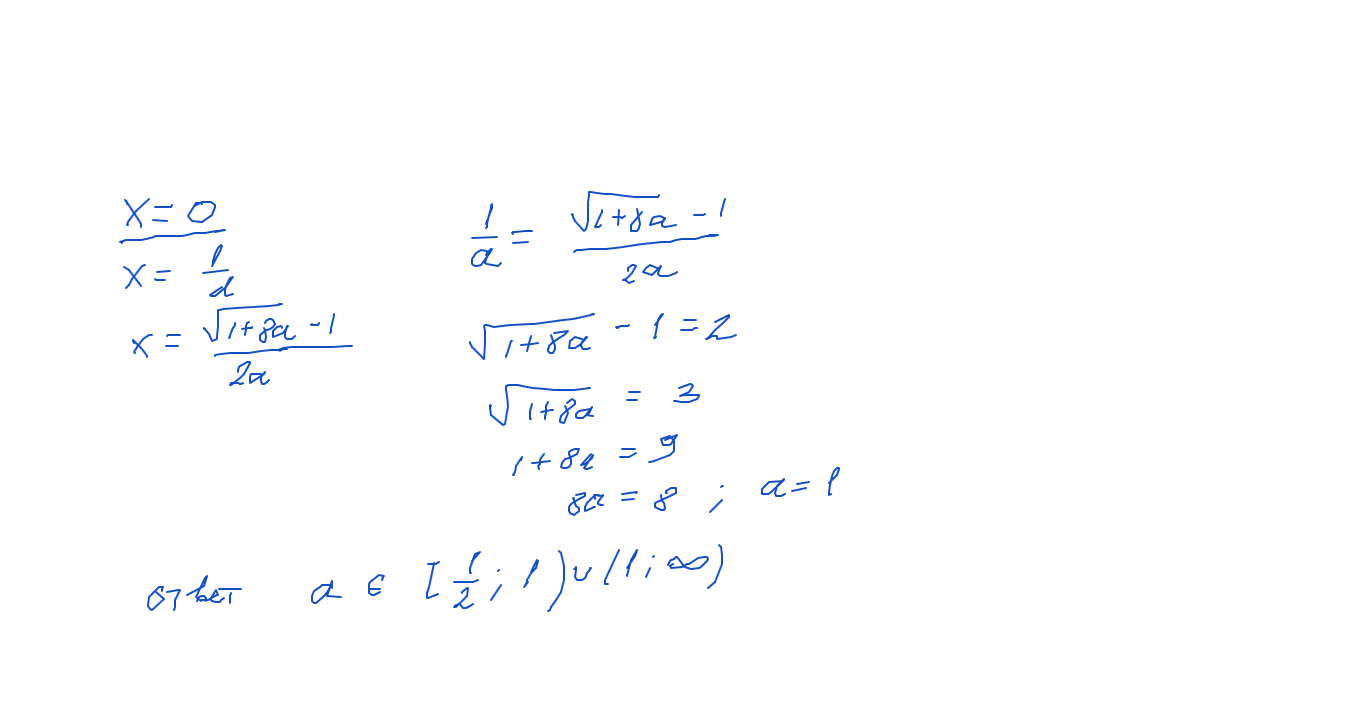 x = 0
x = 1/a
x = (√(1+8a) - 1)/(2a)
1/a = (√(1+8a) - 1)/(2a)
√(1+8a) - 1 = 2
√(1+8a) = 3
1 + 8a = 9
8a = 8 ; a = 1
ответ a ∈ [1/2 ; 1) ∪ (1 ; ∞)